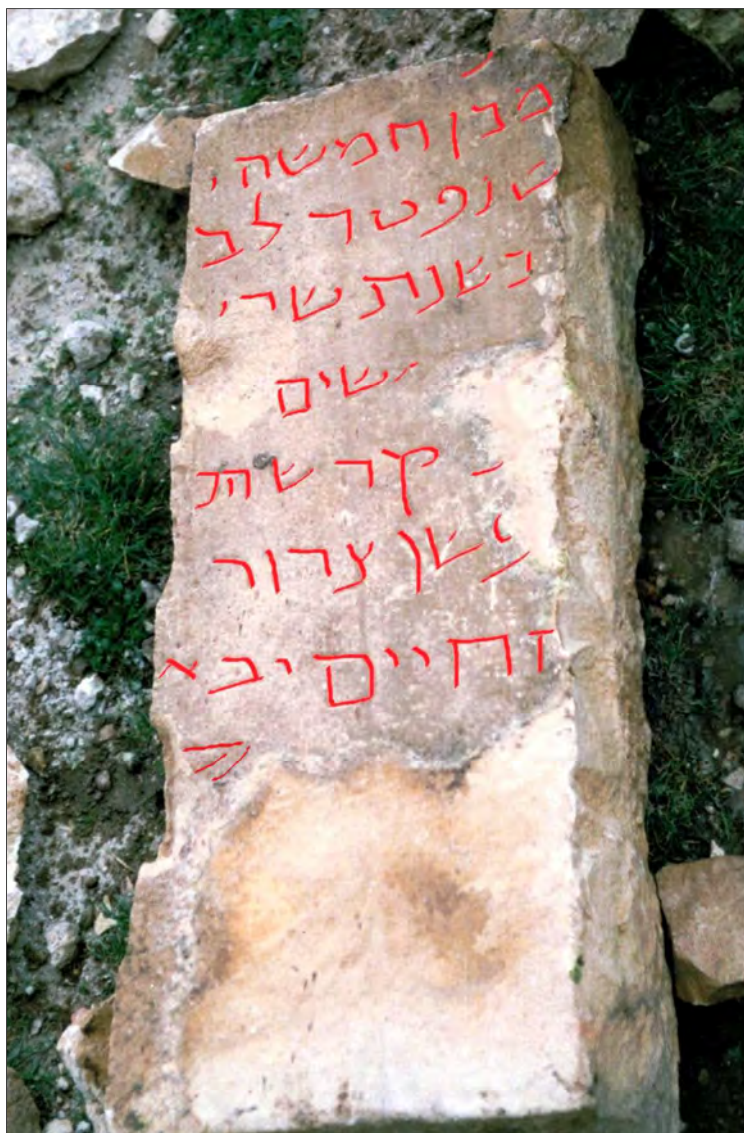 מבן חמשה
שנפטר לב
בשנת שרי
שים
קדשת
שן צרור
החיים יבא